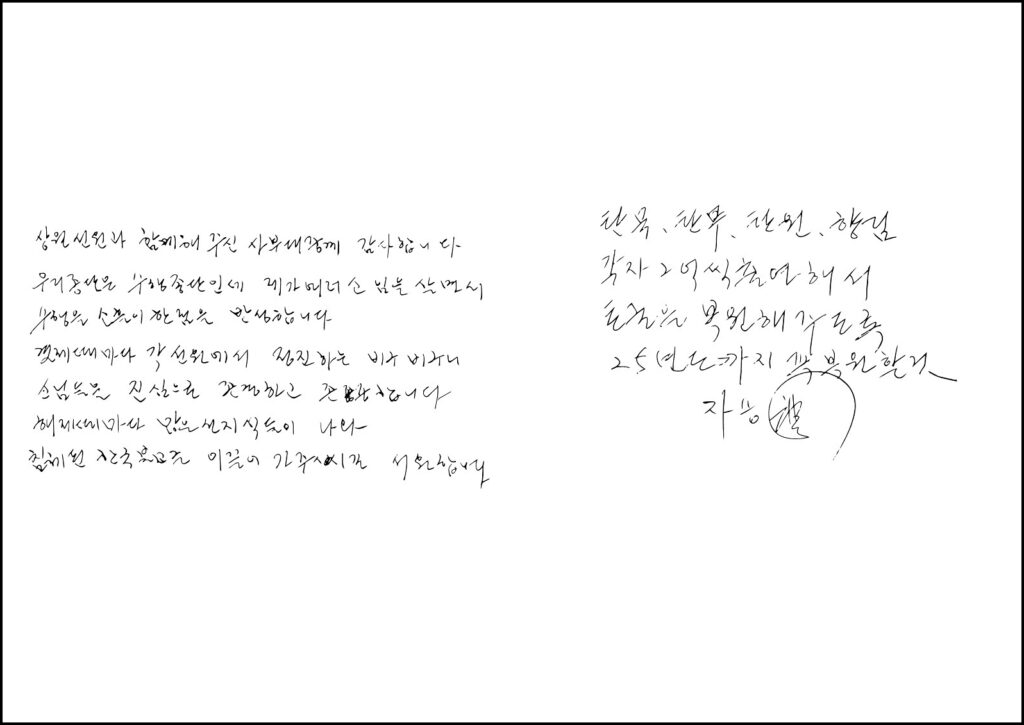 상월선원과 함께해 주신 사부대중께 감사합니다
우리종단은 수행종단인데 제가여러소임을 살면서
수행을 소홀이한점을 반성합니다
결제때마다 각 선원에서 정진하는 비구 비구니
스님들을 진심으로 존경하고 존경합니다
해제때마다 많은선지식들이 나와
침체된 한국불교를 이끌어 가주시시길 서원합니다
탄묵、탄무、탄원、향림
각자 2억씩출연해서
토굴을 복원해주도록
25년도까지 꼭 복원할것
자승